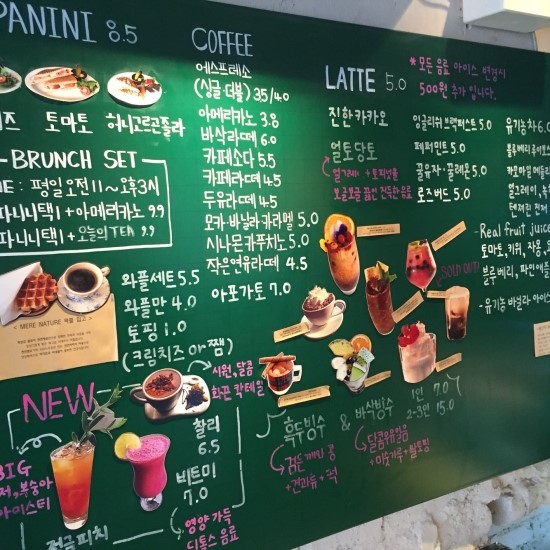 PANINI 8.5
토마토 허니고르곤졸라
BRUNCH SET
: 평일 오전 11~오후 3시
파니니택1+아메리카노 9.9
파니니택1+오늘의TEA 9.9
COFFEE
에스프레소
(싱글·더블) 3.5/4.0
아메리카노 3.8
바삭라떼 6.0
카페소다 5.5
카페라떼 4.5
두유라떼 4.5
모카·바닐라·카라멜 5.0
시나몬 카푸치노 5.0
작은연유라떼 4.5
아포가토 7.0
와플세트 5.5
와플만 4.0
토핑 1.0
(크림치즈 or 쨈)
< MERE NATURE 와플 >
LATTE 5.0
*모든 음료 아이스 변경시
500원 추가 입니다.
진한카카오
얼토당토
보글보글 끓인 진득한음료
잉글리쉬 브랙퍼스트 5.0
페퍼민트 5.0
꿀유자·꿀레몬 5.0
로즈버드 5.0
유기농차 6.0
Real fruit juice
토마토, 키위, 자몽,
블루베리, 파인애플
-유기농 바질라 아이스
SOLD OUT!
NEW
시원, 달콤
화끈 칵테일
찰리
6.5
비트미
7.0
영양 가득
디톡스 음료
BIG
복숭아
아이스티
흑두빙수 & 바삭빙수
1인 7.0
2-3인 15.0
검은깨와 콩
+견과류+떡
달콤우유얼음
+미숫가루+팥토핑